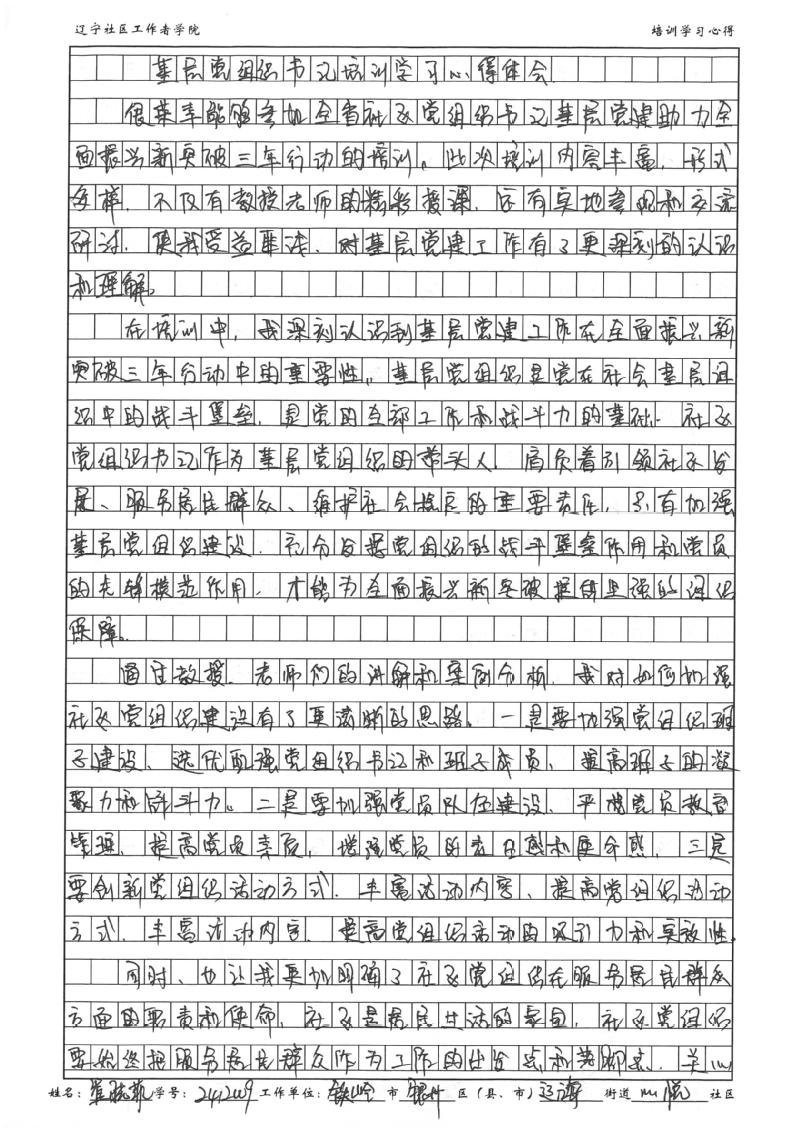 辽宁社区工作者学院 培训学习心得
基层党组织书记培训学习心得体会
很荣幸能够参加全省社区党组织书记基层党建助力全
面振兴新突破三年行动的培训。此次培训内容丰富,形式
多样,不仅有教授老师的精彩授课,还有实地参观和交流
研讨,使我受益匪浅,对基层党建工作有了更深刻的认识
和理解。
在培训中,我深刻认识到基层党建工作在全面振兴新
突破三年行动中的重要性。基层党组织是党在社会基层组
织中的战斗堡垒,是党的全部工作和战斗力的基础。社区
党组织书记作为基层党组织的带头人,肩负着引领社区发
展、服务居民群众、维护社会稳定的重要责任,只有加强
基层党组织建设,充分发挥党组织的战斗堡垒作用和党员
的先锋模范作用,才能为全面振兴新突破提供坚强的组织
保障。
通过教授、老师们的讲解和案例分析,我对如何加强
社区党组织建设有了更清晰的思路。一是要加强党组织班
子建设、选优配强党组织书记和班子成员、提高班子的凝
聚力和战斗力。二是要加强党员队伍建设、严格党员教育
管理、提高党员素质,增强党员的责任感和使命感,三是
要创新党组织活动方式、丰富活动内容、提高党组织活动
方式、丰富活动内容、提高党组织活动的吸引力和实效性。
同时、也让我更加明确了社区党组织在服务居民群众
方面的职责和使命,社区是居民生活的家园,社区党组织
要始终把服务居民群众作为工作的出发点和落脚点,关心
姓名: 学号: 2412009 工作单位: 铁岭 市 银州 区(县、市) 辽海 街道 心悦 社区